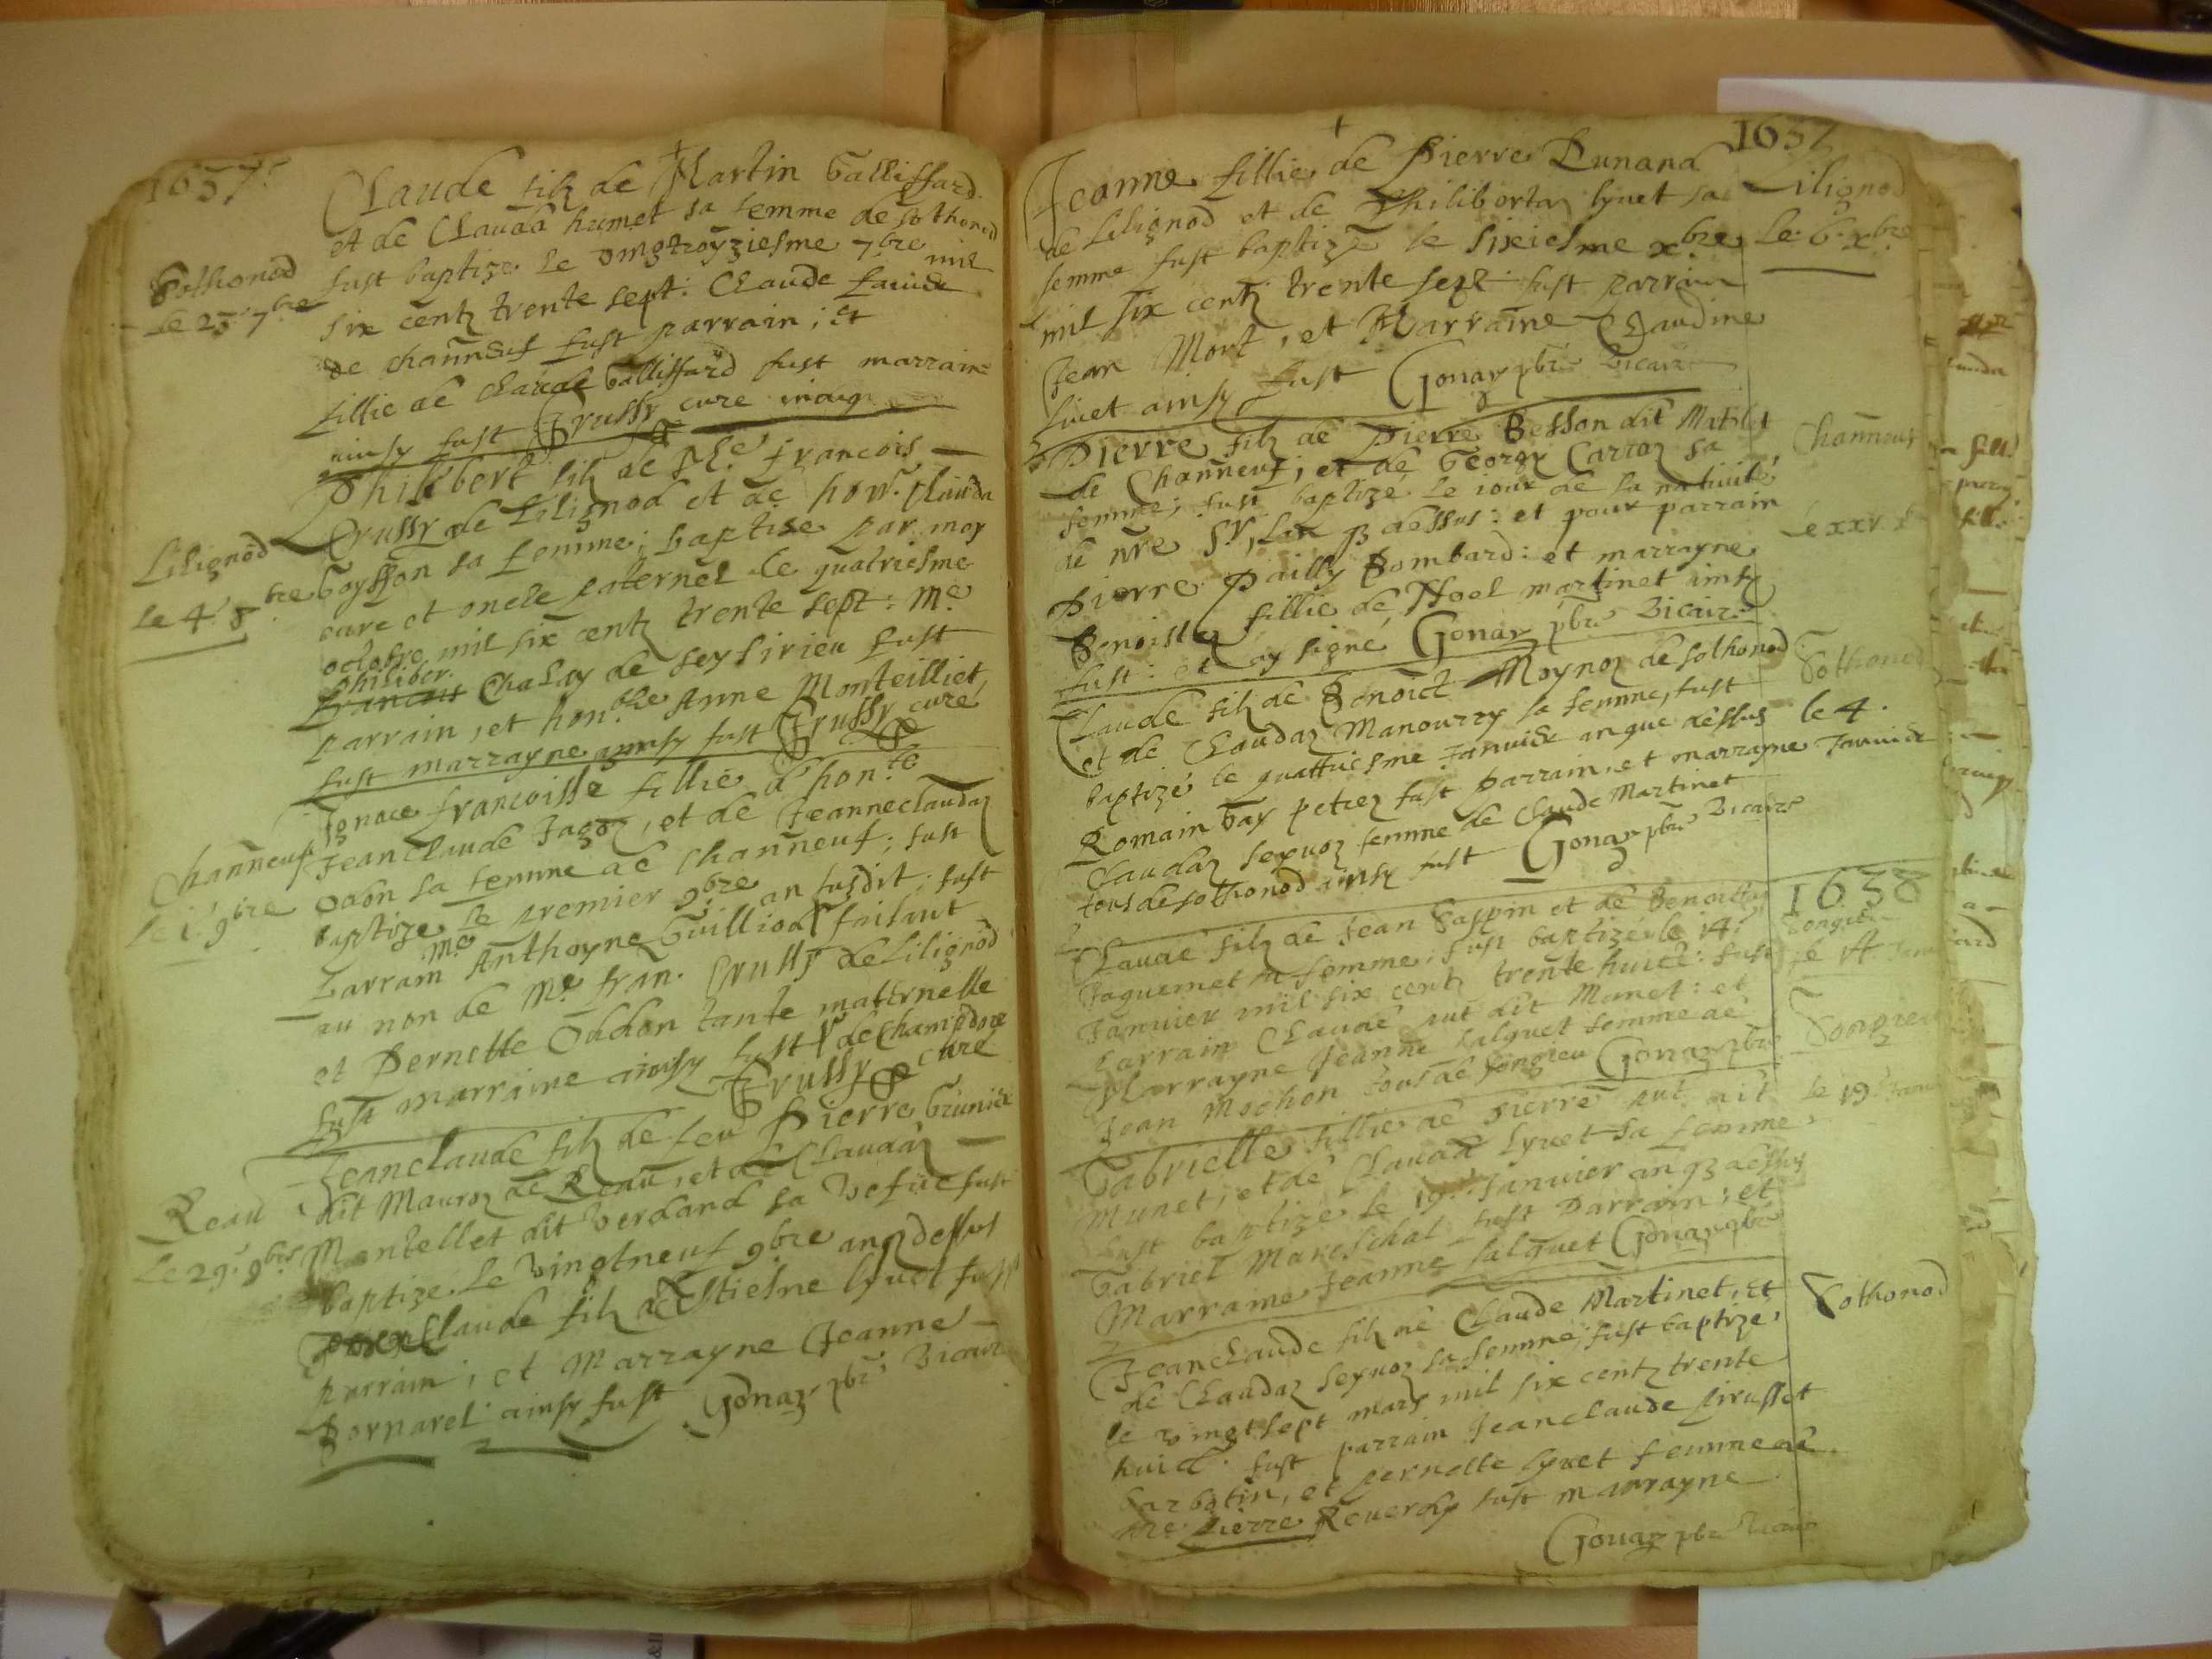 1637.
Claude filz de Martin Galliffard
et de Clauda humet sa femme de sothonod
fust baptize le vingtroyziesme 7bre mil
Sothonod
le 23 7bre
six centz trente sept: Claude
de channeuf fust parrain; et
fillie de Claude Galliffard fust marraine
ainsy fust Brussy cure
Philibert filz de Me francois
Brussy de Lilignod et de hon. Clauda
Lilignod
le 4. 8bre
Goyffon sa femme; baptise par moy
cure et oncle paternel le quatriesme
octobre mil six centz trente sept: Me
philiber.
francois Chalay de seyssirieu fust
parrain, et honble Anne Monteilliet
fust marrayne ainsy fust Brussy curé
Ignace francoisse fillie d'honte
channeuf
le 1. 9bre
Jeanclaude Jagoz, et de Jeanneclaudaz
odon sa femme de channeuf; fust
baptize le premier 9bre an susdit; fust
parrain Me Anthoyne Guilliod faisant
au non de Me fran. Brussy de Lilignod
et Pernette Oddon tante maternelle
fust marraine ainsy fust de Champdore
Brussy cure
Jeanclaude filz de feu Pierre Brunier
Reau
le 29. 9bre
dit Mauroz de Reau, et de Claudaz
Mantellet dit Verdand sa vefue fust
baptize le vingtneuf 9bre anqdessus
Claude filz d'Estiesne lyuet fust
parrain; et Marrayne Jeanne
Pornarel ainsy fust Gonaz pbr Vicaire
1637
Jeanne fillie de Pierre Dunand
de Lilignod et de Philibertaz lyuet sa
femme fust baptizé le sixiesme xbre
mil six centz trente sept fust parrain
Jean Mort, et Marraine Claudine
Liuet ainsy fust Gonaz pbr Vicaire
Lilignod
le 6. xbre
Pierre filz de Pierre Besson dit Matilet
de Channeuf; et de Georgz Carraz sa
femme; fust baptizé le iour de la natiuité
de nre Sr, l'an q dessus: et pour parrain
Pierre Pailly Bombard: et marrayne
Benoiste fillie de Noel martinet ainsy
fust: et ay signé Gonaz pbr Vicaire
Channeuf
le xxv x
Claude filz de Benoict Moynoz de sothonod
et de Claudaz Manourry sa femme, fust
baptizé le quattriesme Januier an que dessus
Romain Gay petrez fust parrain, et marrayne
Claudaz seyuoz femme de Claude Martinet
tous de sothonod ainsy fust Gonaz pbr Vicaire
Sothonod
le 4.
Januier
1638
Claude filz de Jean Gaspin et de Benoitte
Jaquemet sa femme, fust baptizé le 14.
Januier mil six centz trente huict: fust
parrain Claude dit Manet: et
Marrayne Jeanne salquet femme de
Jean Mochon tous de songieu Gonaz pbr
Songieu
le 14 Janu
Gabrielle fillie de Pierre dit
Munet; et de Clauda Lyuet sa femme
fust baptize le 19. Januier an q dessus
Gabriel Mareschal fust Parrain; et
Marraine Jeanne salquet Gonaz pbr
Songieu
le 19. Janu
Jeanclaude filz de Claude Martinet, et
de Claudaz seyuoz sa femme, fust baptize,
le vingt sept mars mil six centz trente
huict. fust parrain Jeanclaude Pirusset
barbotin, et pernette lyuet femme de
Pierre Reuerdy fust marrayne
Gonaz pbr Vicaire
Sothonod